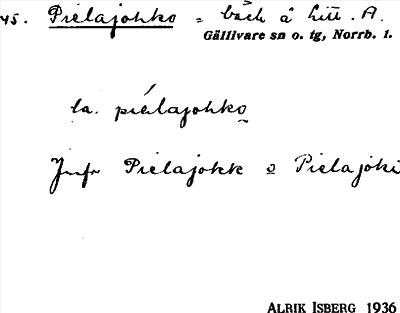 45. Pielajohko = bäck å litt. A.
Gällivare sn o. tg, Norrb. l.
la. piélajohko
Jmfr Pielajokk o Pielajoki
ALRIK ISBERG 1936